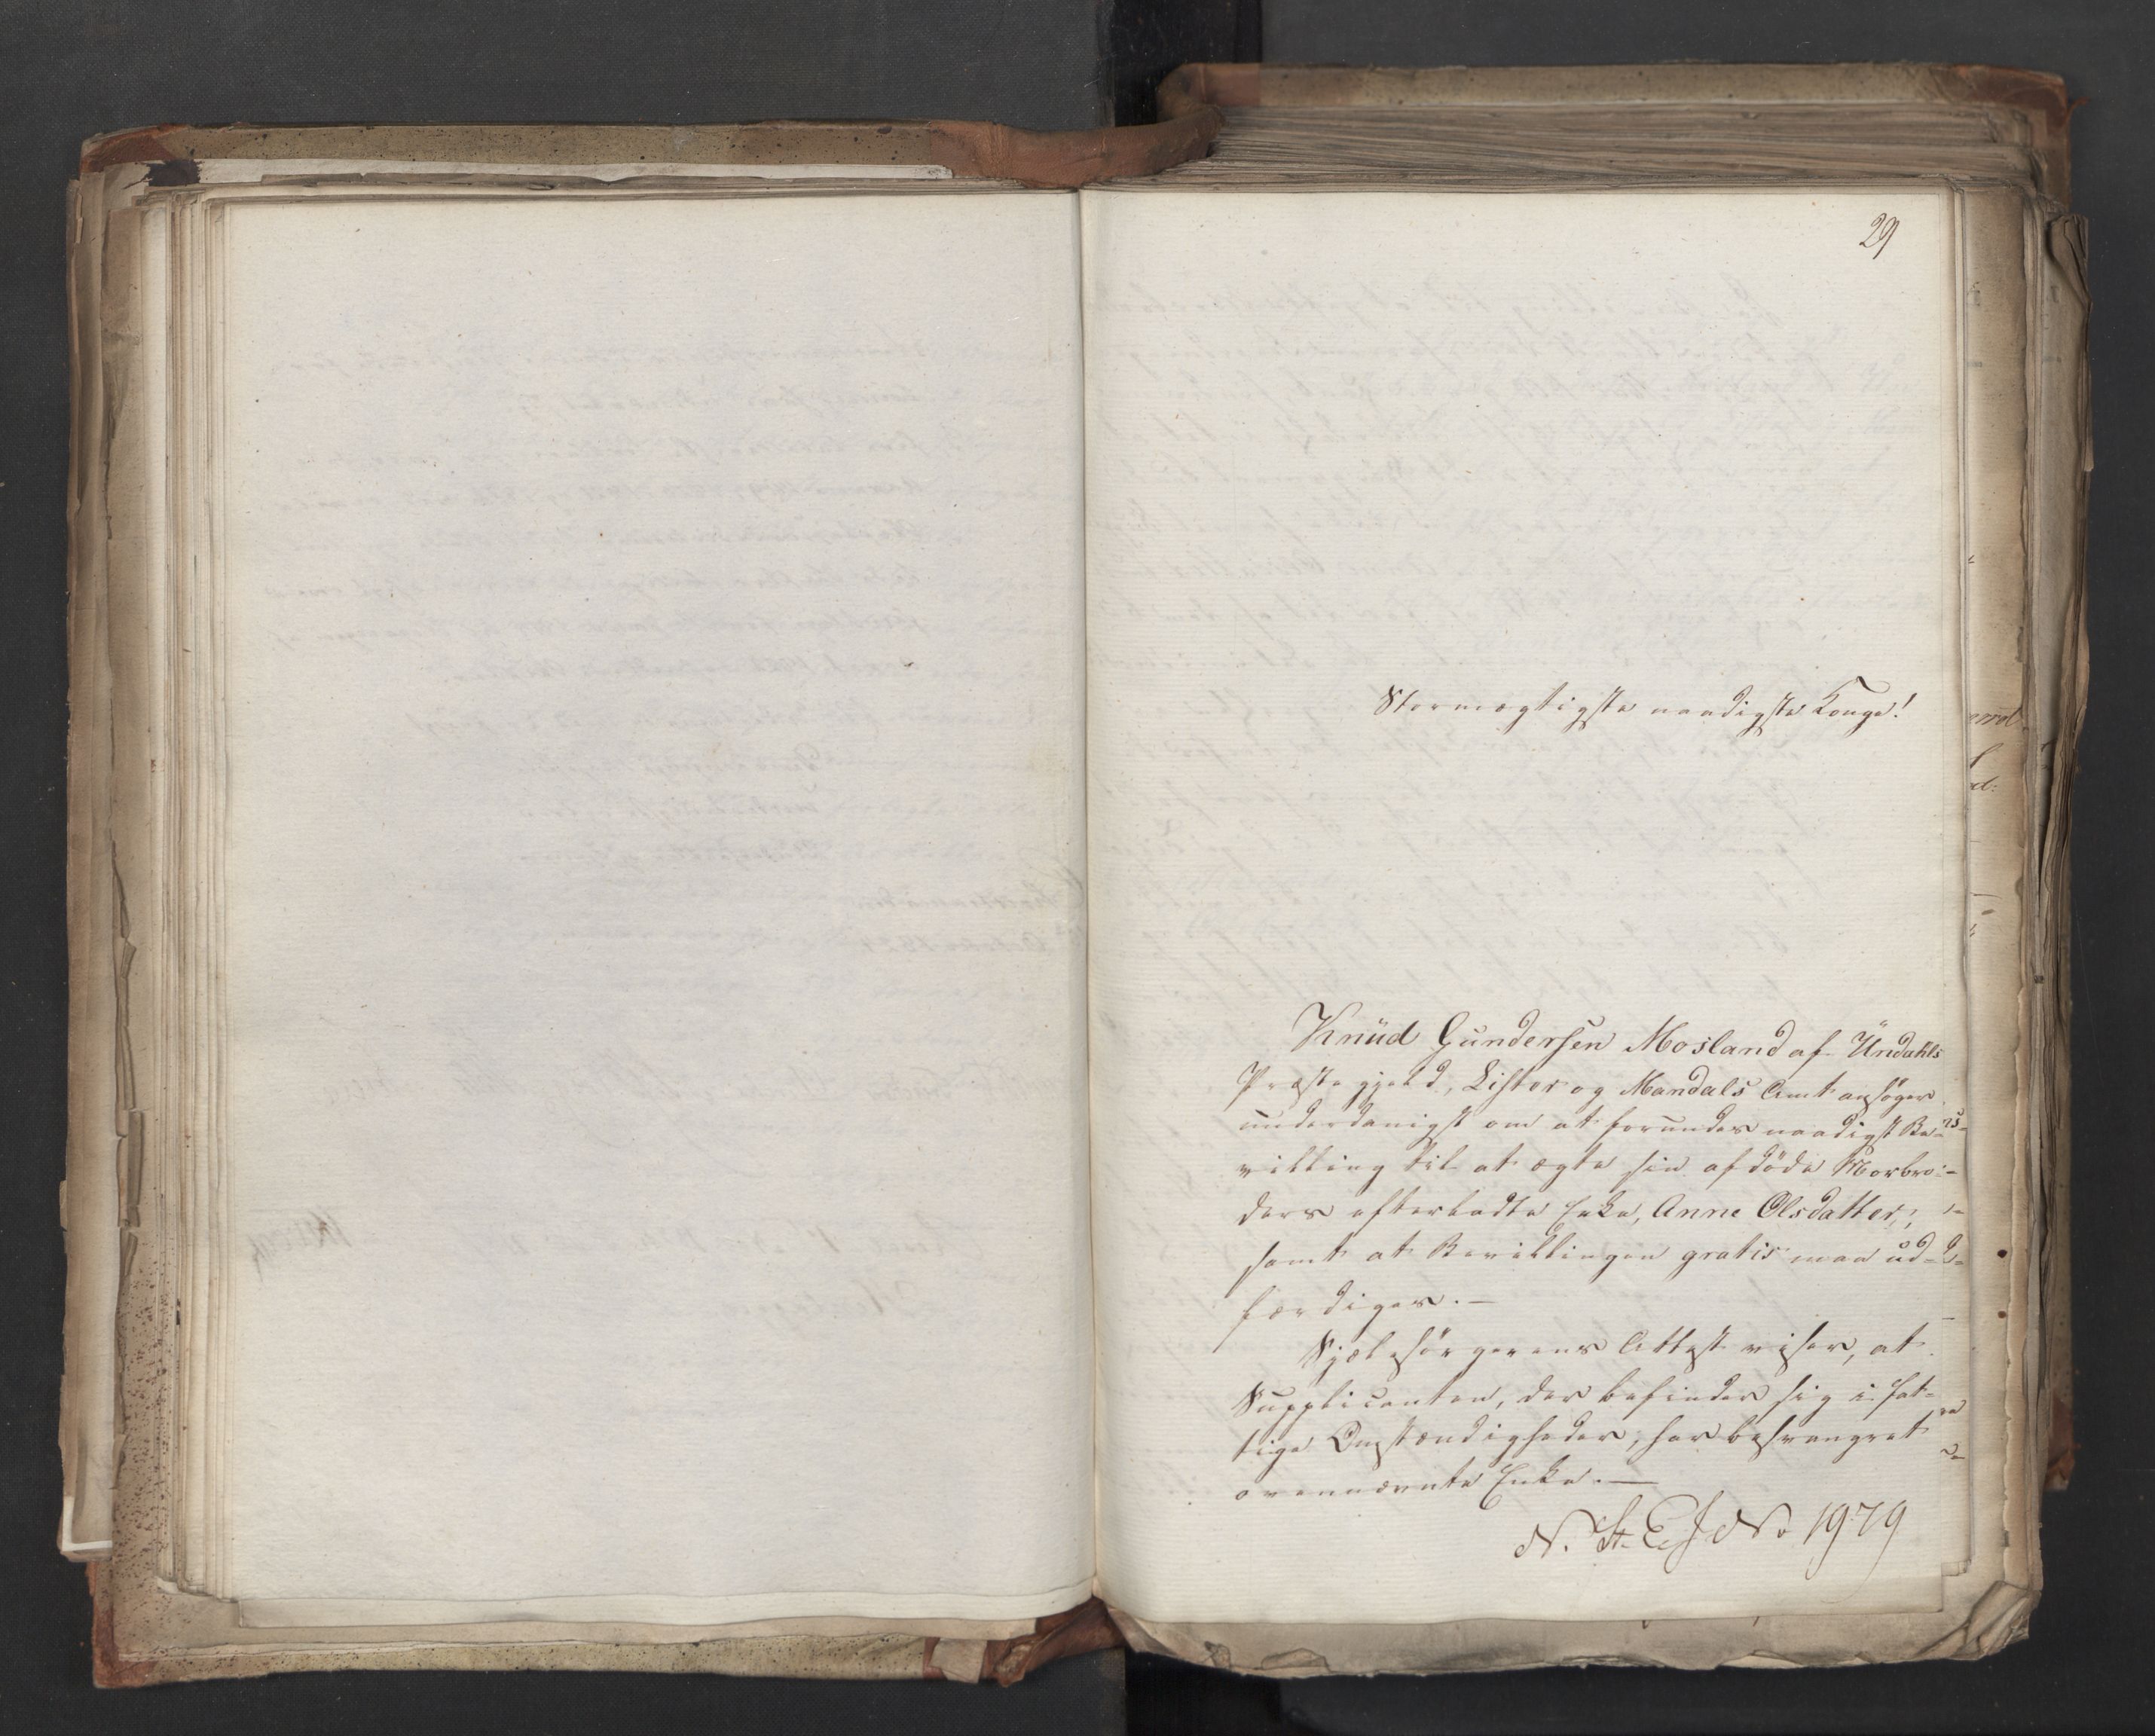 29
Stormægtigste naadigste Konge!
Knud Gundersen Mosland af Undahls
Præstegjeld, Lister og Mandals Amt ansøger
underdanigst om at forundes naadigst Be-
villing til at ægte sin afdøde Morbro-
ders efterladte Enke, Anne Olsdatter,
samt at Bevillingen gratis maa ud-
færdiges.—
Sjælesørgerens Attest viser, at
Supplicanten, der befinder sig i fat-
tige Omstændigheder, har besvangret
ovennævnte Enke.—
N. St. E. J No 1979